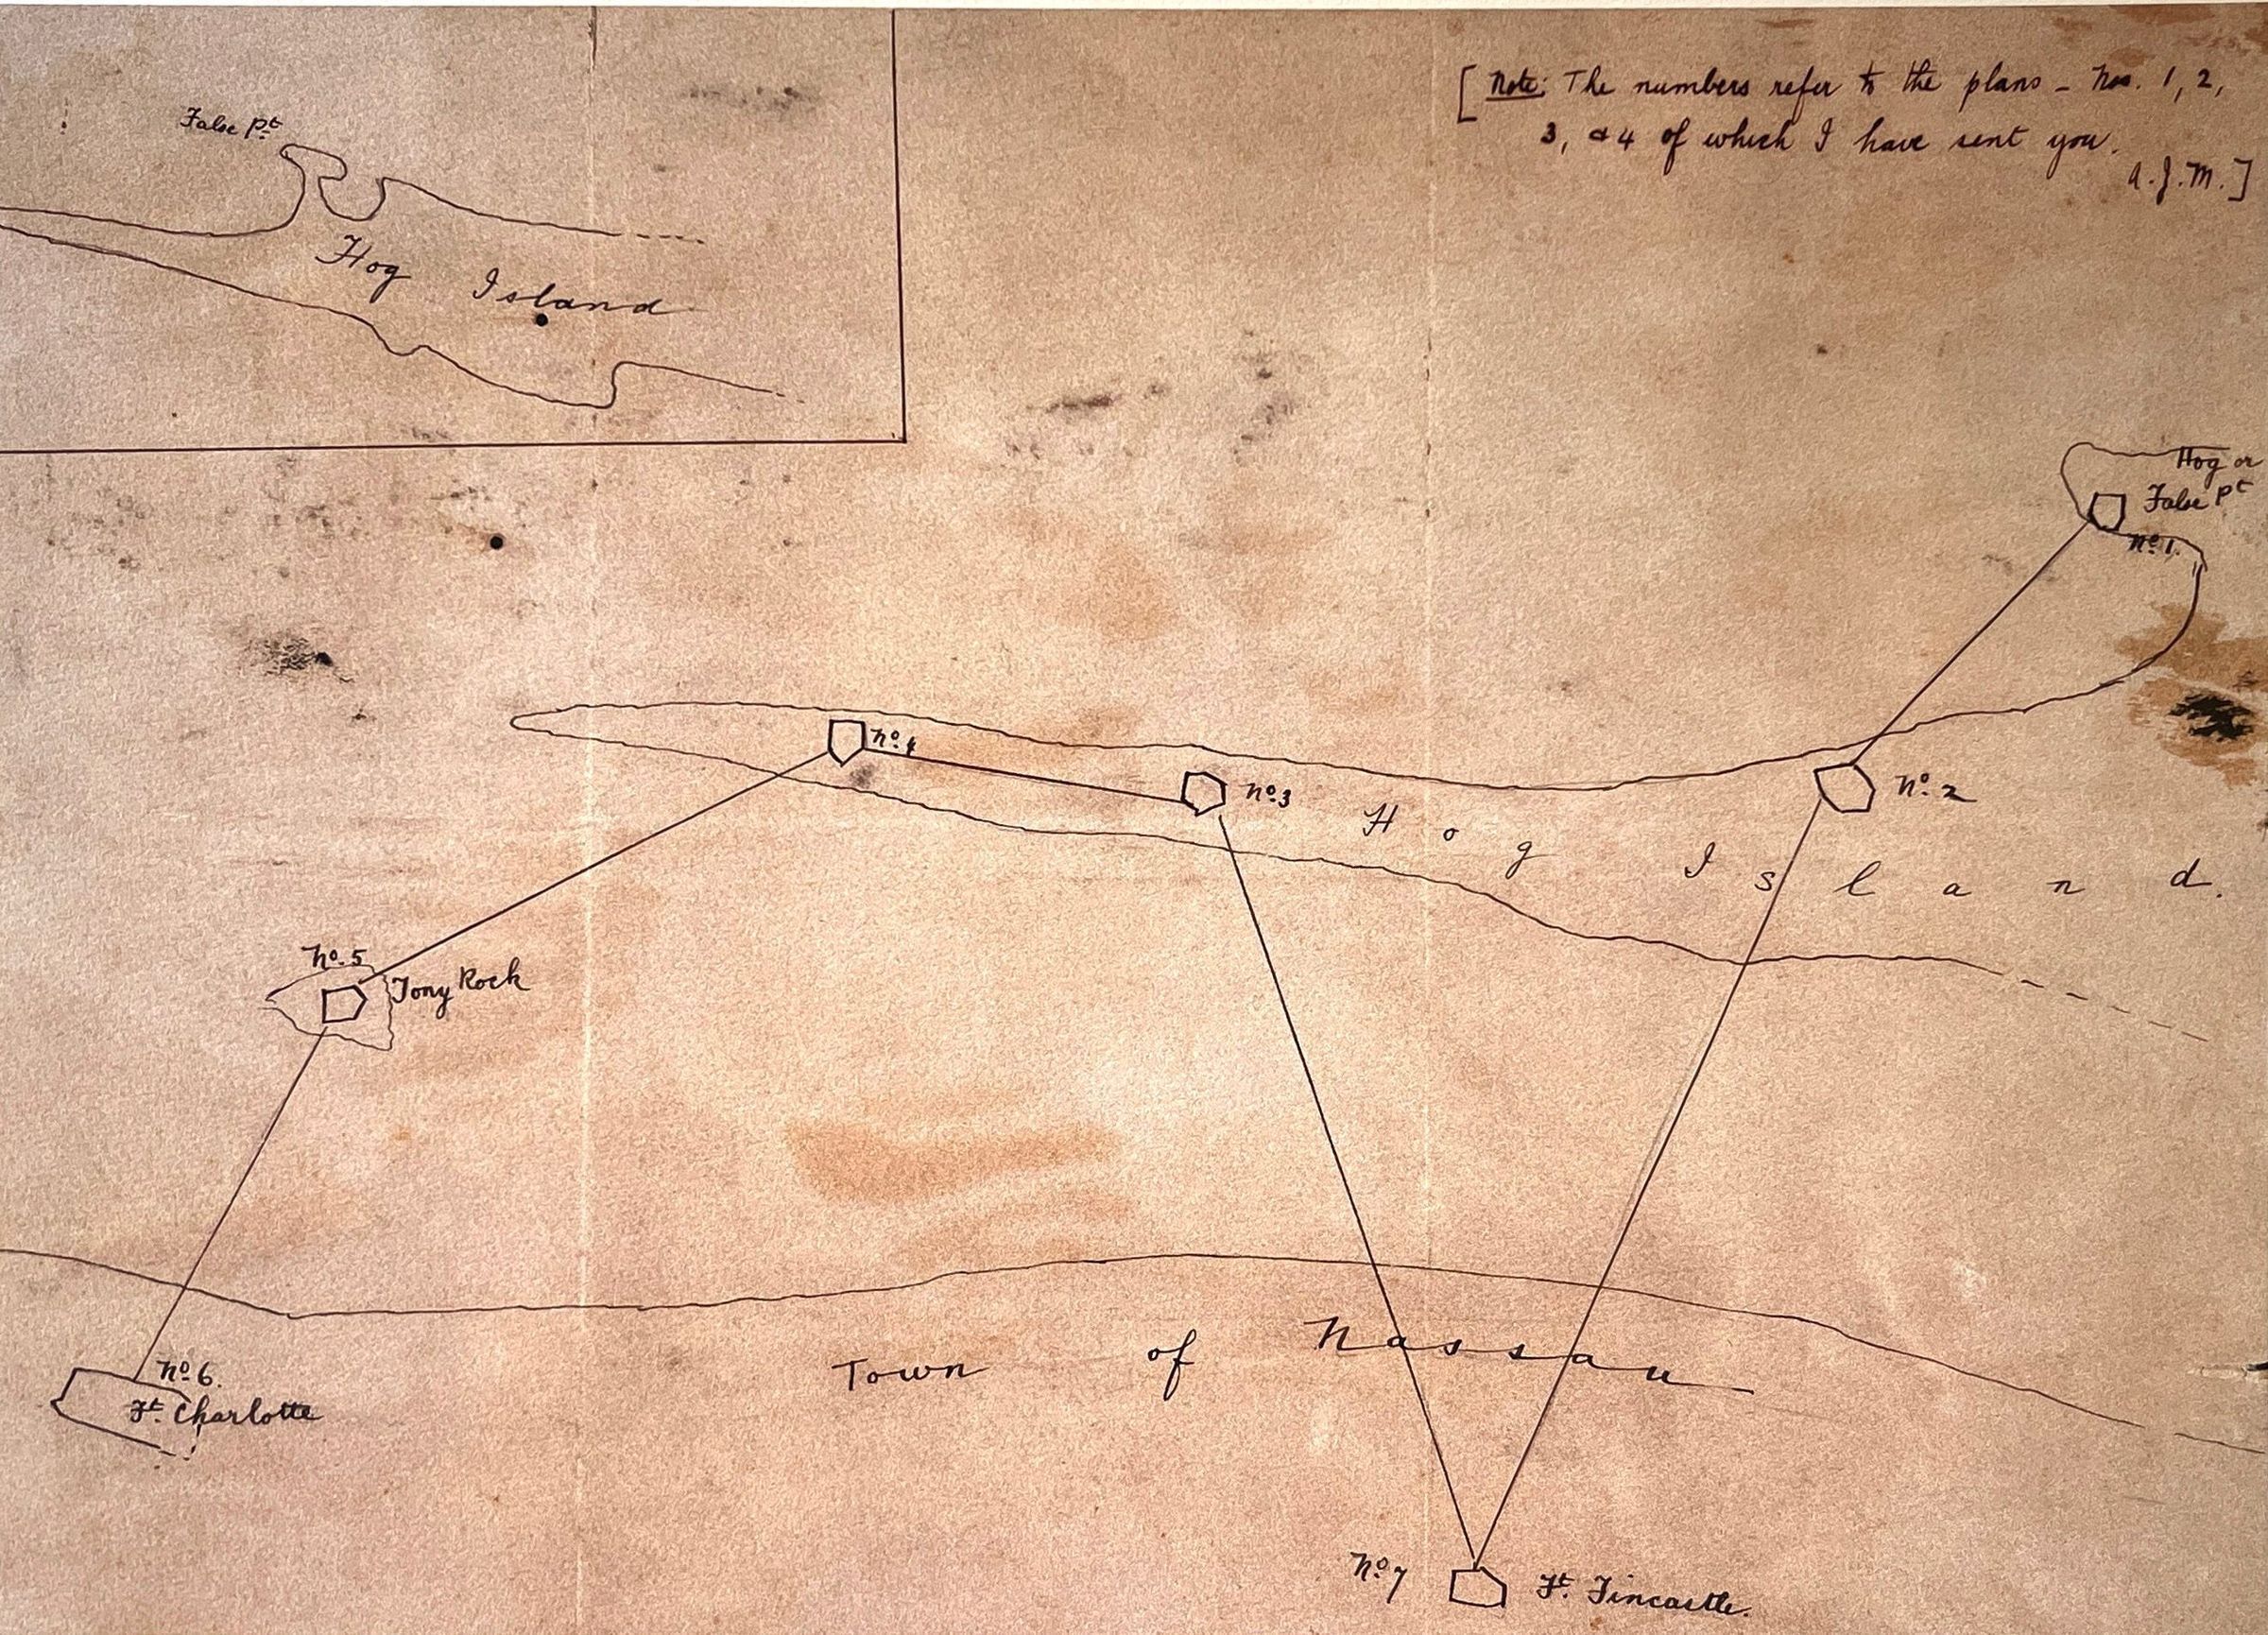 [Note: The numbers refer to the plans - Nos. 1, 2,
3, & 4 of which I have sent you.
A.J.M.]
False Pt
Hog Island
Hog or
False Pt
No. 1.
No. 4
No. 3
No. 2
Hog Island.
No. 5
Tony Rock
No. 6.
Ft. Charlotte
Town of Nassau
No 7
Ft. Fincastle.